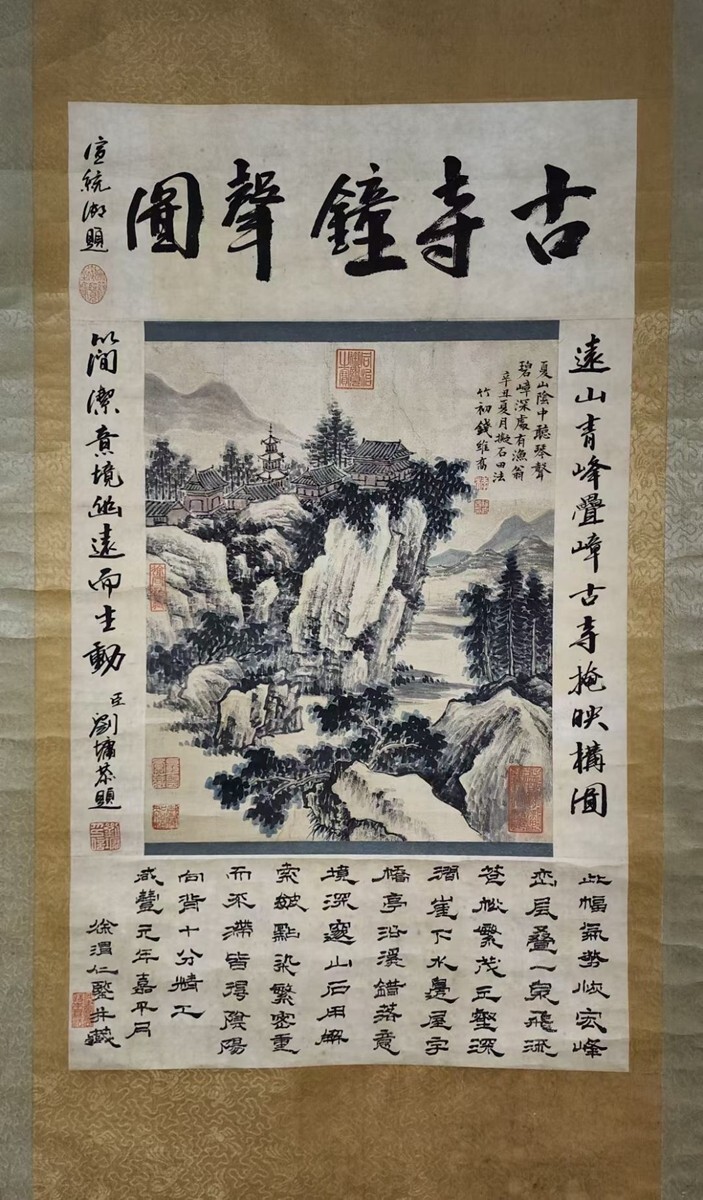 古寺鐘聲圖
宣統御題
遠山青峰疊嶂古寺掩映構圖
以簡潔意境幽遠而生動
臣劉墉恭題
夏山陰中聽琴聲
碧嶂深處有漁翁
辛丑夏月擬石田法
竹初錢維喬
此幅氣勢恢宏峰
巒層疊一泉飛流
蒼松繁茂丘壑深
濶崖下水邊屋宇
橋亭沿溪錯落意
境深邃山石用解
索皴點染繁密重
而不滯皆得陰陽
向背十分精工
咸豐元年嘉平月
徐渭仁鑒并識